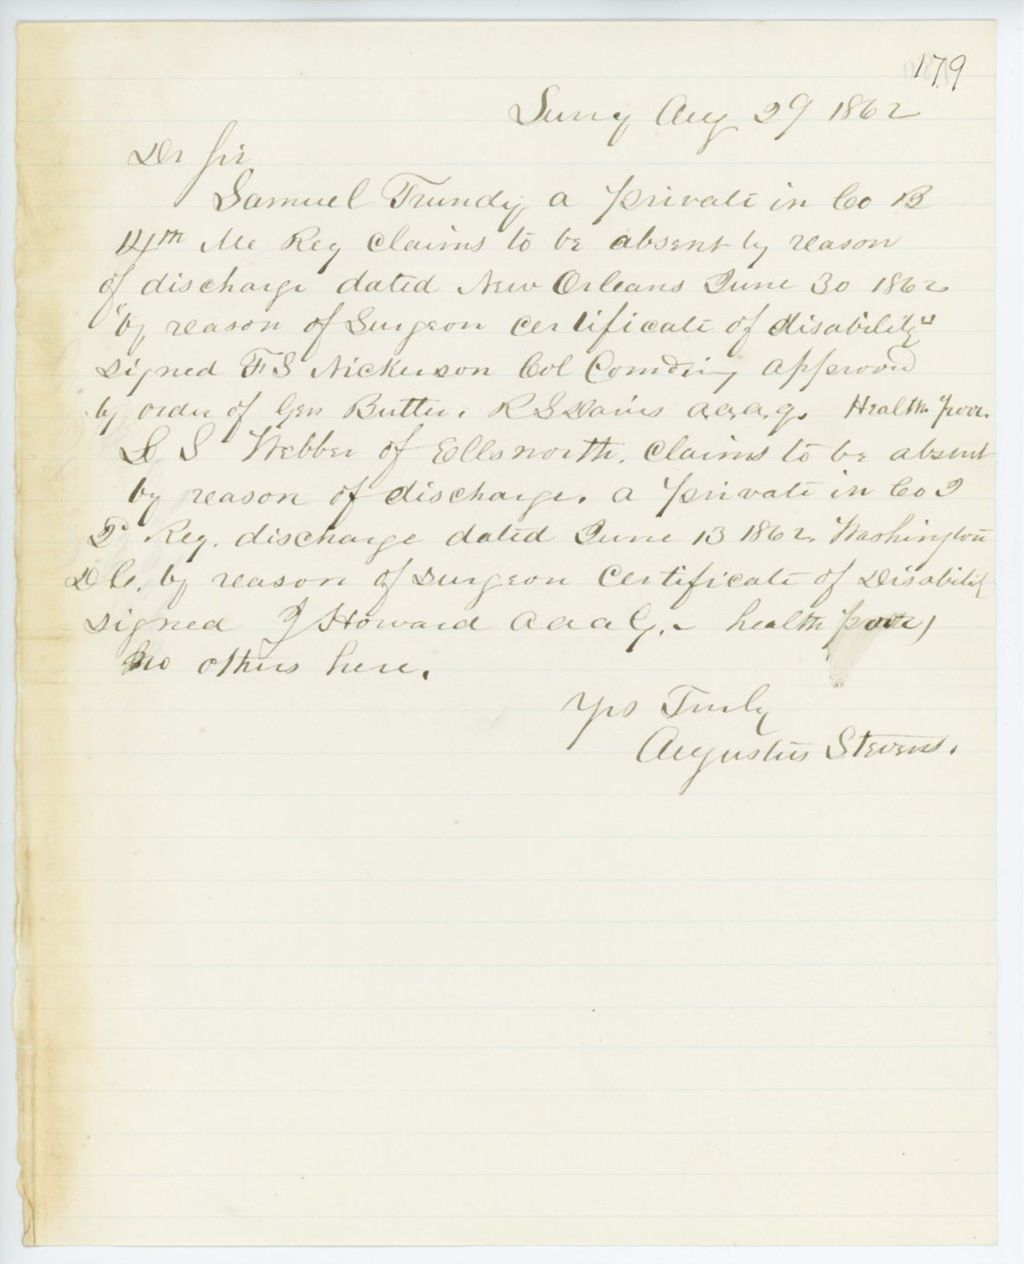 179
Surry Aug 29 1862
Dr Sir
Samuel Trundy a private in Co B
14th Me Reg claims to be absent by reason
of discharge dated New Orleans June 30 1862
"by reason of Surgeon certificate of disability"
signed F S Nickerson Col Comding approved
by order of Gen Butler. R S Davis a.a.a.g. Health poor.
S Webber of Ellsworth. claims to be absent
by reason of discharge. a private in Co
Reg. discharge dated June 13 1862. Washington
DC. by reason of Surgeon Certificate of Disability
signed J Howard a a a G. - health poor,
no others here.
Yrs Truly
Augustus Stevens.